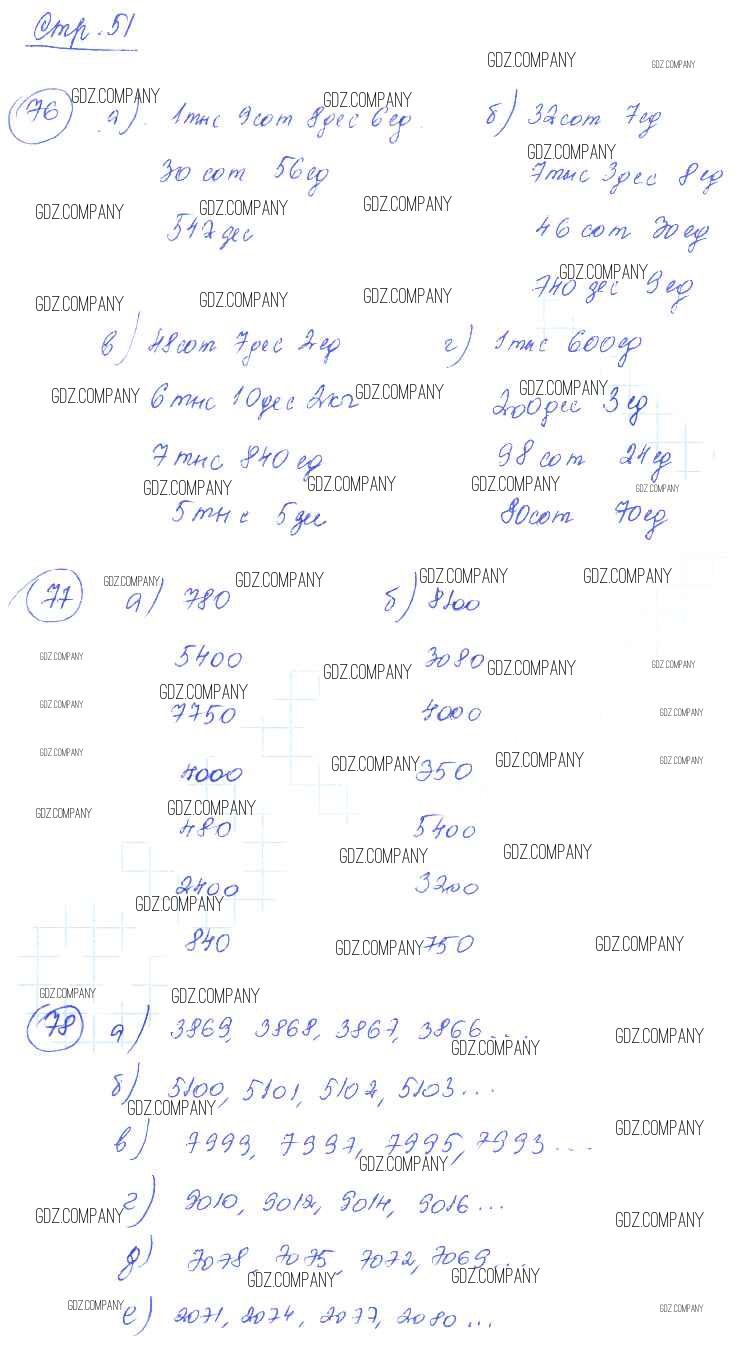 Стр. 51
76 а) 1тыс 9сот 8дес 6ед
30 сот 56ед
547 дес
б) 32сот 7ед
7тыс 3дес 8ед
46 сот 30ед
740 дес 9ед
в) 48сот 7дес 2ед
6тыс 10дес 2кг
7тыс 840ед
5тыс 5дес
г) 1тыс 600ед
200дес 3ед
98 сот 24ед
80сот 70ед
77 а) 780
5400
7750
4000
480
2400
840
б) 8100
3080
4000
350
5400
3200
750
78 а) 3869, 3868, 3867, 3866...
б) 5100, 5101, 5102, 5103...
в) 7999, 7997, 7995, 7993...
г) 9010, 9012, 9014, 9016...
д) 7078, 7075, 7072, 7069...
е) 2071, 2074, 2077, 2080...
GDZ.COMPANY